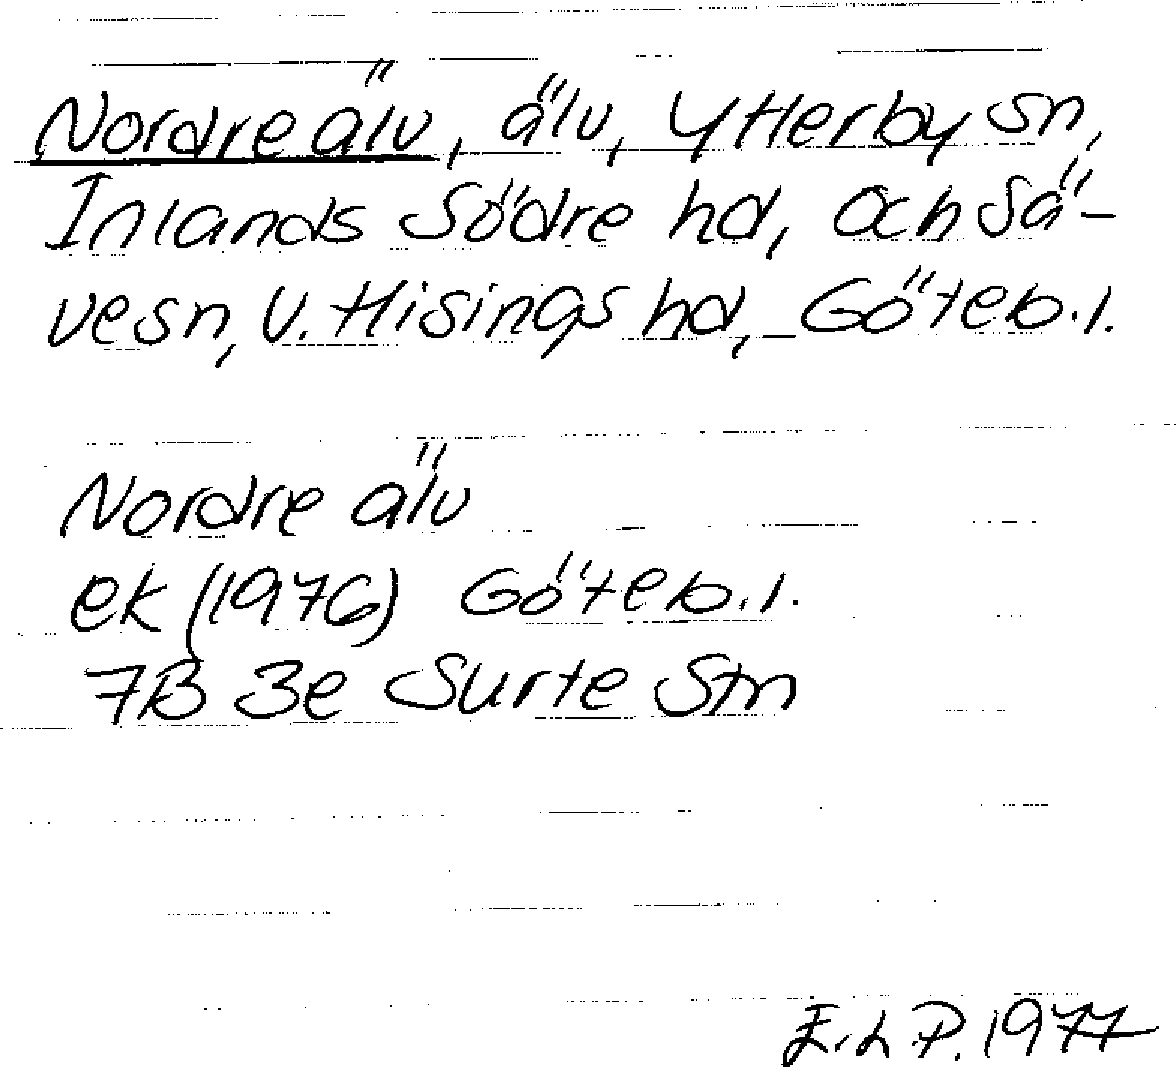 Nordre älv, älv, Ytterby sn,
Inlands Södre hd, och Sä-
ve sn, V. Hisings hd, Göteb. l.
Nordre älv
ek (1976) Göteb. l.
7B 3e Surte Stn
E. L P. 1977